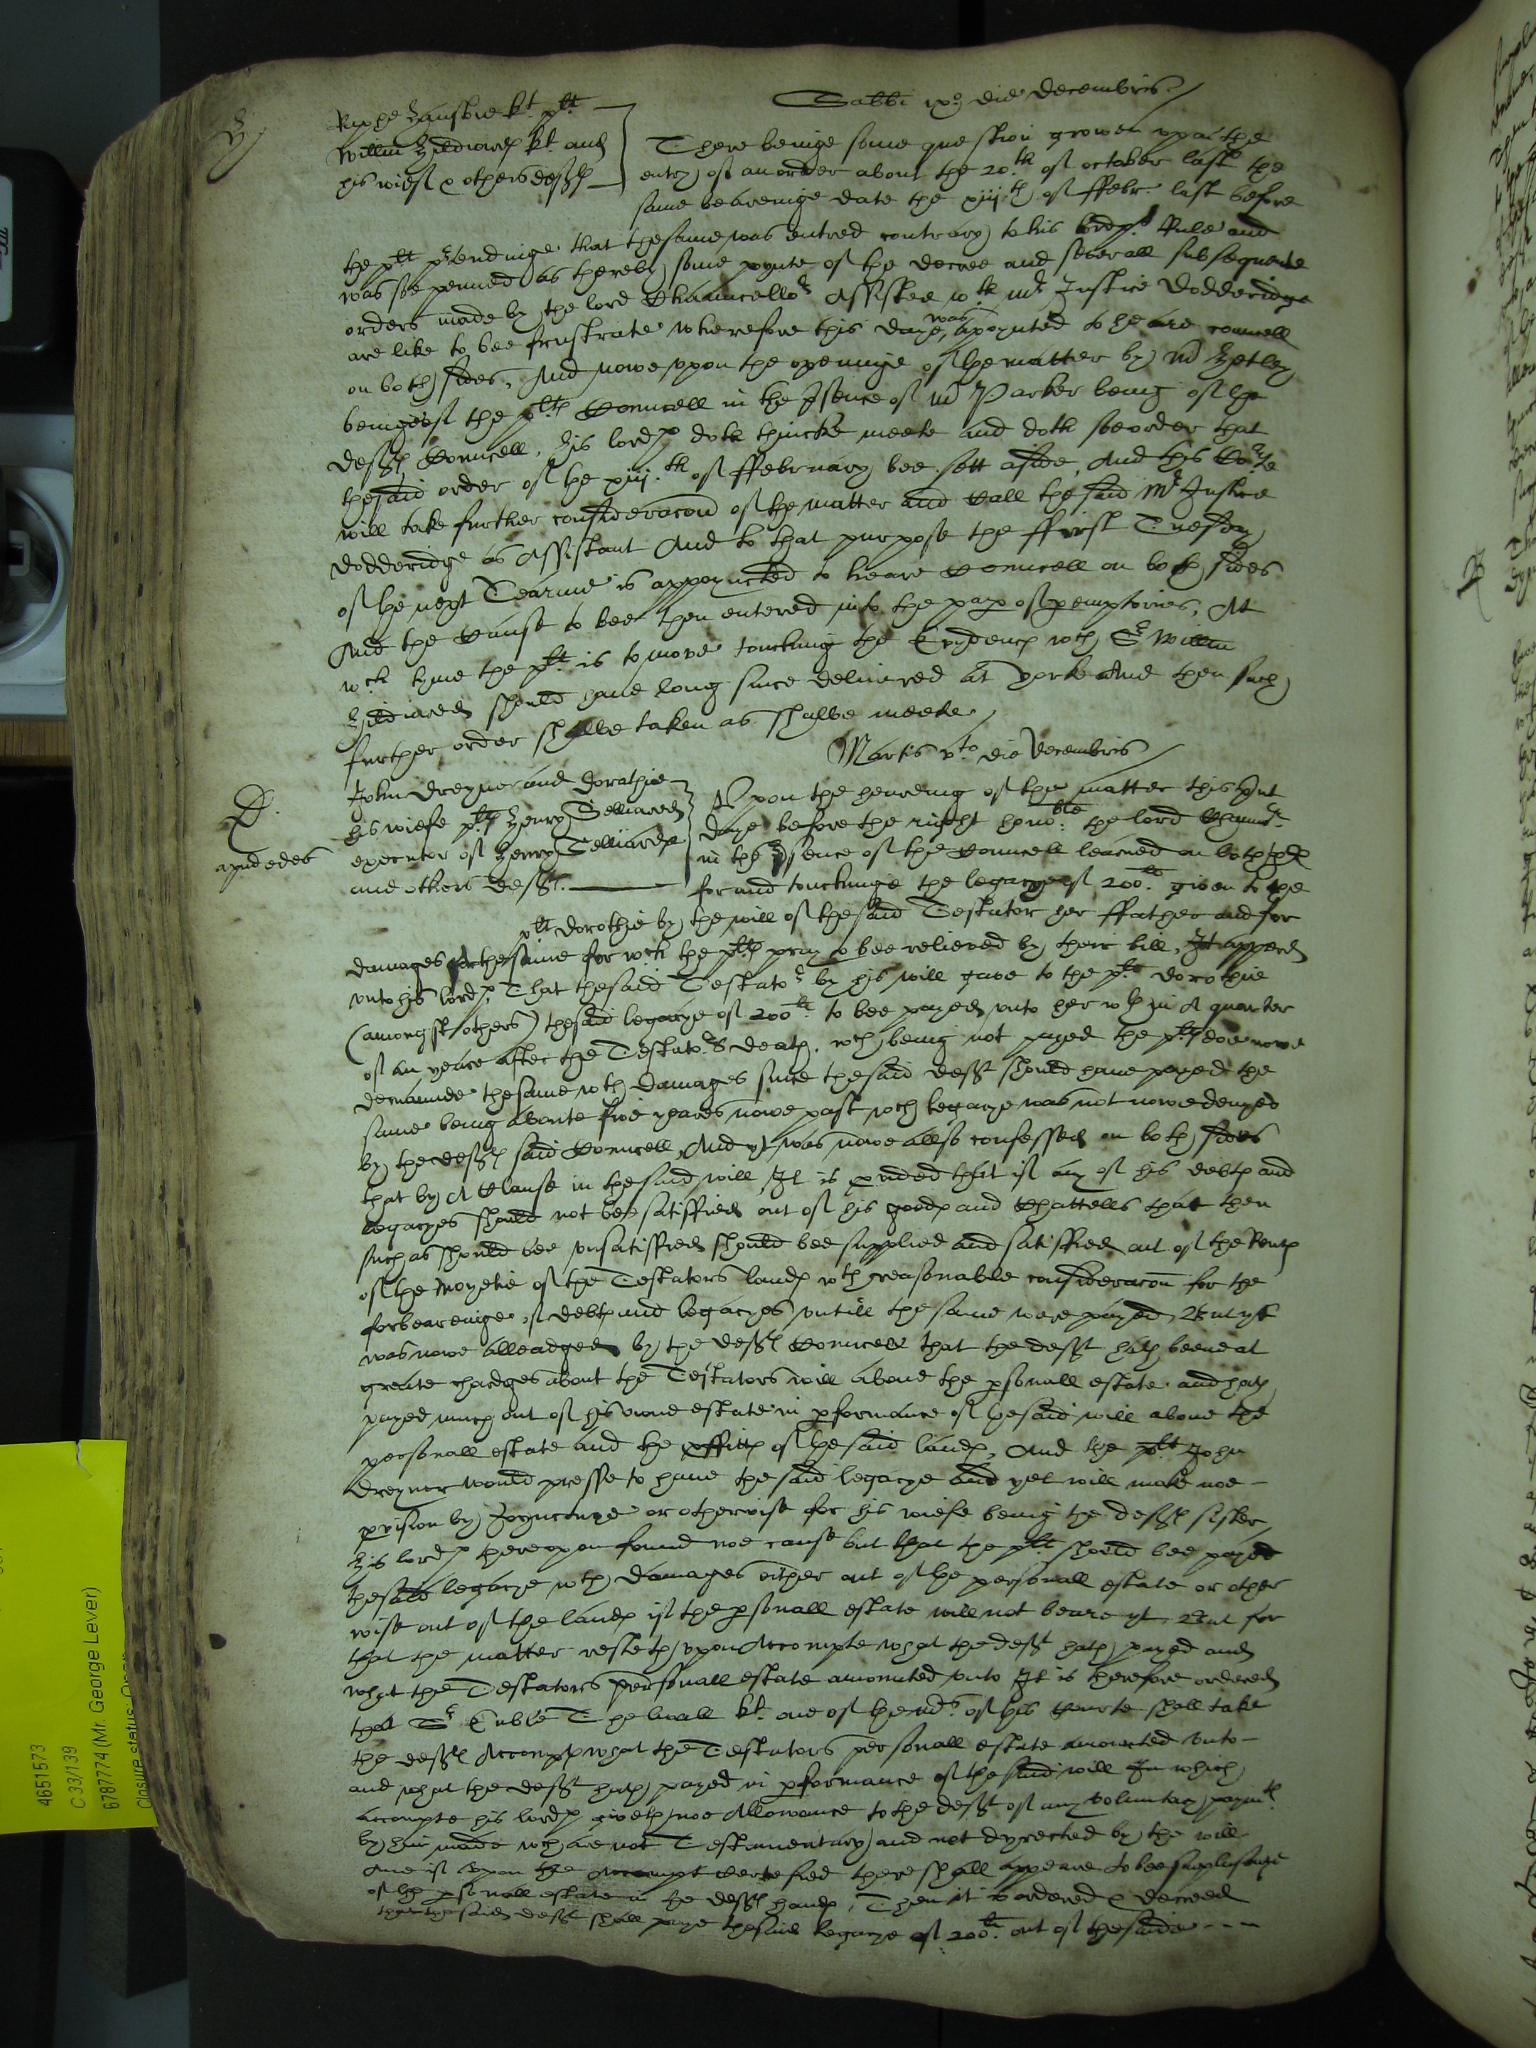 Sabbti ixo die decembris
H
Raphe Hansbie kt plt
Willm Hildiard kt and
his wief & others defts
There beinge some question growen upon the
entry of an order about the 20th of october last the
same bearinge date the xiijth of ffebr: last before
the plt prtendinge that the same was entred contrary to his lordps Rule and
was soe penned as thereby some poynte of the decree and severall subsequente
orders made by the lord Chauncellor Assisted wth mr Justice Dodderidge
are like to bee frustrate wherefore this daye was apoynted to heare councell
on both sides, And nowe upon the openinge of the matter by mr Hetley
beinge of the plts Councell in the prsence of mr Parker being of the
defts Councell, his lordp doth thincke meete and doth soe order that
the said order of the xiijth of ffebruary bee sett aside, And this Courte
will take further consideracon of the matter and Call the said Mr Justice
Dodderidge as Assistant And to that purpose the ffirst Tuesday
of the next Tearme is appoyncted to heare Councell on both sides
And the Cause to bee then entered into the paper of peremptories, At
wch tyme the plt is to move touching the Evydence wch Sr Willm
Hildiard should have long since delivered at Yorke And then such
further order shalbe taken as shalbe meete
Martis vto die decembris
D.
John Dreyner and Dorathie
his wiefe plts Henry Telliard
executor of Henry Telliarde
and others defts.
Upon the hearding of the matter this prnt
daye before the right honoble: the lord Chauncr:
in the prsence of the Councell learned on both ptes
for and touchinge the legacye of 200li given to the
plt Dorothie by the will of the said Testator her ffather and for
damages for the same for wch the plts pray to bee relieved by their bill, It appered
unto his lordp That the said Testator by his will gave to the plt Dorothie
(amongst others) the said legacye of 200li to bee payed unto her wthin A quarter
of an yeare after the Testators death, wch being not payed the plts doe nowe
demaunde the same wth damages since the said deft should have payed the
same being aboute five yeares nowe past wch legacye was not nowe denyed
by the defts said Councell, And yt was nowe allso confessed on both sides
that by A Clause in the said will It is pvided that if any of his debts and
legacyes should not bee satisfied out of his goods and Chattells that then
such as should bee unsatisfied should bee supplied and satisfied out of the Rents
of the moyetie of the Testators lands wth reasonable consideracon for the
forbearinge of debts and legacyes untill the same were payed, But yt
was nowe alleadged by the defts Councell that the deft hath beene at
greate chardges about the Testators will above the psonall estate and hath
payed much out of his owne estate in pformance of the said will above the
personall estate and the pffitts of the said lands, And the plt John
Dreyner would presse to have the said legacye and yet will make noe
pvision by Joyncture or otherwise for his wiefe being the defts sister
his lordp thereupon found noe cause but that the plt should bee payed
the said legacye wth damages either out of the personall estate or other
wise out of the lands if the psonall estate will not beare yt, But for
that the matter resteth upon Accompte what the deft hath payed and
what the Testators personall estate amounted unto It is therefore ordered
that Sr Euble Thelwall kt one of the mrs of this Courte shall take
the defts Accompt what the Testators personall estate amounted unto
and what the deft hath payed in pformance of the said will In which
accompte his lordp giveth noe Allowance to the deft of any voluntary paymts
by him made wch are not Testamentary and not dyrected by the will
And if upon the Accompt certefied there shall appeare to bee surplusage
of the psonall estate in the defts hands, Then it is ordered & decreed
that the said deft shall paye the said legacye of 200li out of the said
4651573
C 33/139
6787774 (Mr. George Lever)
Closure status: Open